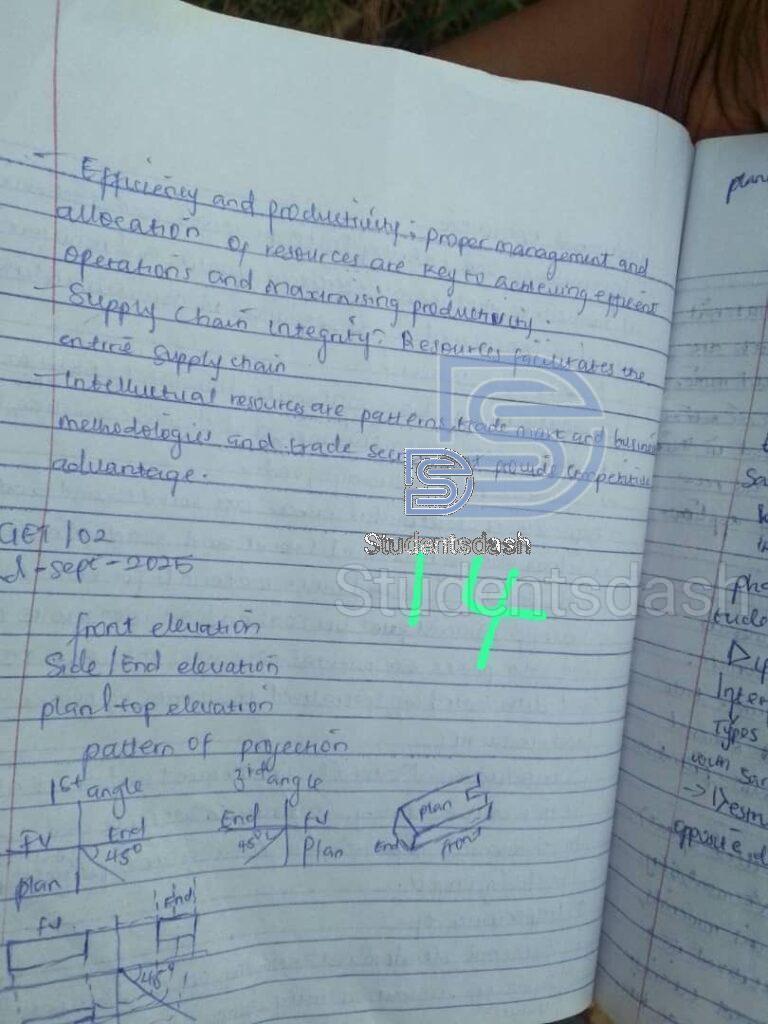 - Efficiency and productivity: proper management and
allocation of resources are key to achieving efficient
operations and maximising productivity.
- Supply Chain integrity: Resources facilitates the
entire supply chain
- Intellectual resources are patterns, trade mark and
methodologies and trade provide competitive
advantage.
GET 102
-Sept-2025
front elevation
Side/End elevation
plan/top elevation
pattern of projection
1st angle 3rd angle
FV End End FV
45° 45°
plan Plan
plan
End front
FV End
45°
14
Studentsdash
Studentsdash
plan
Inter
Types
opposite